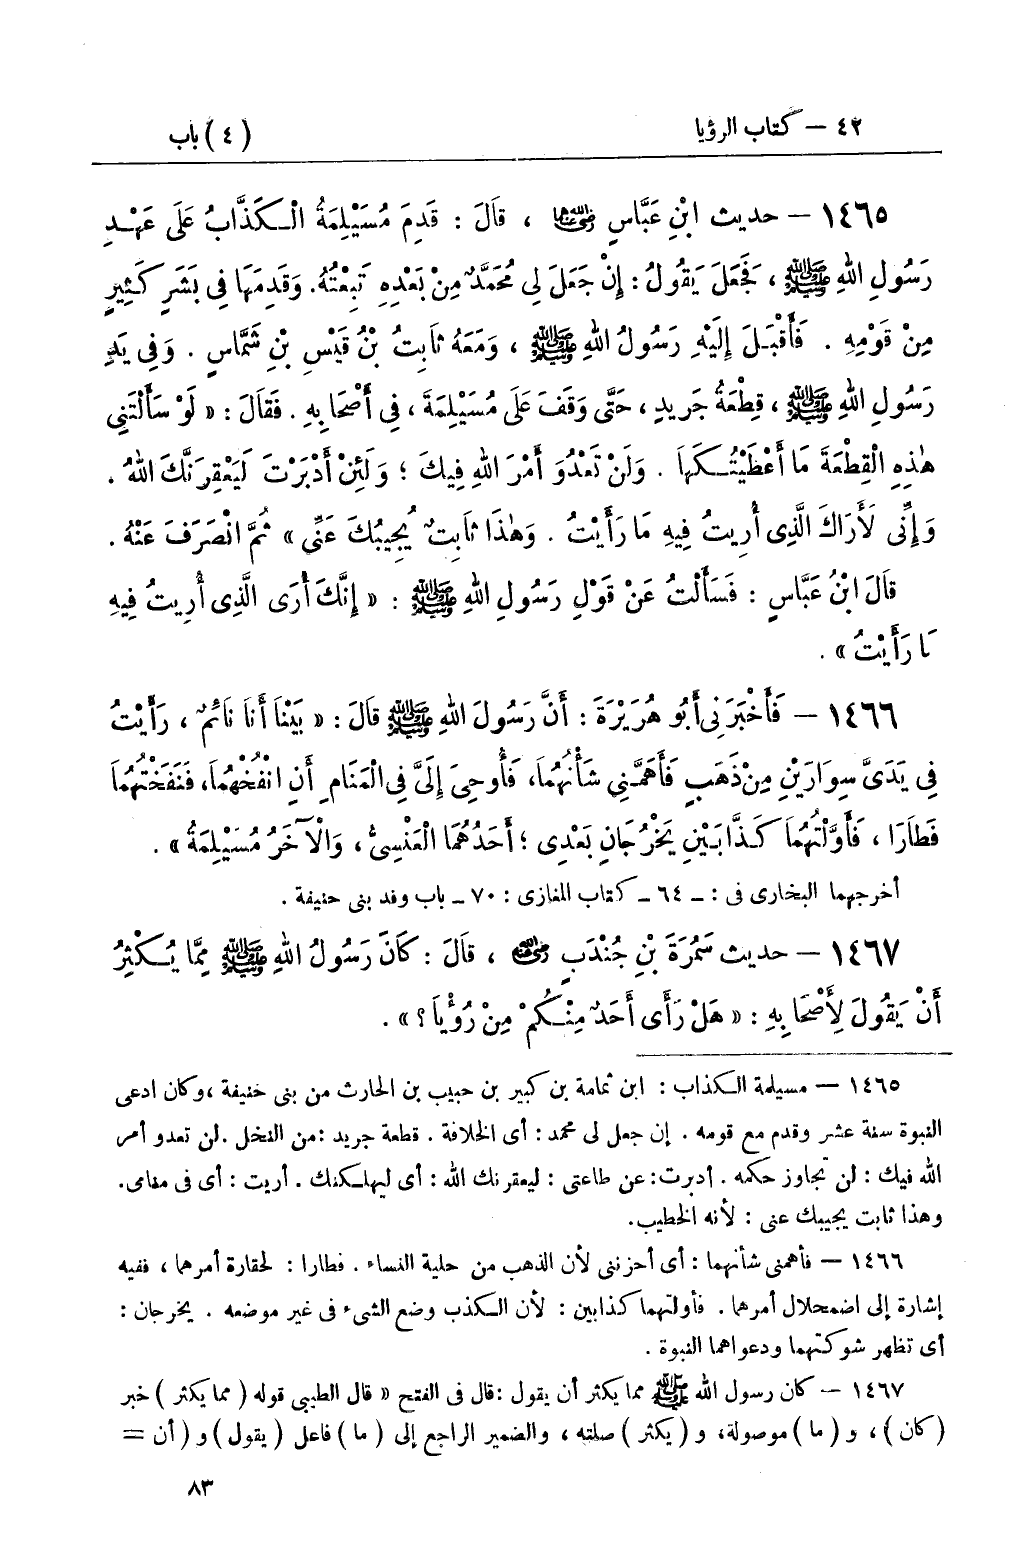 ٤٢ – كتاب الرؤيا (٤) باب
١٤٦٥ – حديث ابْنِ عَبَّاسٍ رضي الله عنهما ، قَالَ : قَدِمَ مُسَيْلِمَةُ الْكَذَّابُ عَلَى عَهْدِ
رَسُولِ اللهِ ﷺ ، فَجَعَلَ يَقُولُ : إِنْ جَعَلَ لِي مُحَمَّدٌ مِنْ بَعْدِهِ تَبِعْتُهُ. وَقَدِمَهَا فِي بَشَرٍ كَثِيرٍ
مِنْ قَوْمِهِ . فَأَقْبَلَ إِلَيْهِ رَسُولُ اللهِ ﷺ ، وَمَعَهُ ثَابِتُ بْنُ قَيْسِ بْنِ شَمَّاسٍ . وَفِي يَدِ
رَسُولِ اللهِ ﷺ ، قِطْعَةُ جَرِيدٍ ، حَتَّى وَقَفَ عَلَى مُسَيْلِمَةَ ، فِي أَصْحَابِهِ . فَقَالَ : « لَوْ سَأَلْتَنِي
هٰذِهِ الْقِطْعَةَ مَا أَعْطَيْتُكَهَا . وَلَنْ تَعْدُوَ أَمْرَ اللهِ فِيكَ ؛ وَلَئِنْ أَدْبَرْتَ لَيَعْقِرَنَّكَ اللهُ .
وَإِنِّي لَأَرَاكَ الَّذِي أُرِيتُ فِيهِ مَا رَأَيْتُ . وَهٰذَا ثَابِتٌ يُجِيبُكَ عَنِّي » ثُمَّ انْصَرَفَ عَنْهُ .
قَالَ ابْنُ عَبَّاسٍ : فَسَأَلْتُ عَنْ قَوْلِ رَسُولِ اللهِ ﷺ : « إِنَّكَ أَرَى الَّذِي أُرِيتُ فِيهِ
مَا رَأَيْتُ » .
١٤٦٦ – فَأَخْبَرَنِي أَبُو هُرَيْرَةَ : أَنَّ رَسُولَ اللهِ ﷺ قَالَ : « بَيْنَا أَنَا نَائِمٌ ، رَأَيْتُ
فِي يَدَيَّ سِوَارَيْنِ مِنْ ذَهَبٍ فَأَهَمَّنِي شَأْنُهُمَا، فَأُوحِيَ إِلَيَّ فِي الْمَنَامِ أَنِ انْفُخْهُمَا، فَنَفَخْتُهُمَا
فَطَارَا ، فَأَوَّلْتُهُمَا كَذَّابَيْنِ يَخْرُجَانِ بَعْدِي ؛ أَحَدُهُمَا الْعَنْسِيُّ ، وَالْآخَرُ مُسَيْلِمَةُ » .
أخرجهما البخارى فى : ـ ٦٤ ـ كتاب المغازى : ٧٠ ـ باب وفد بنى حنيفة .
١٤٦٧ – حديث سَمُرَةَ بْنِ جُنْدَبٍ رضي الله عنه ، قَالَ : كَانَ رَسُولُ اللهِ ﷺ مِمَّا يُكْثِرُ
أَنْ يَقُولَ لِأَصْحَابِهِ : « هَلْ رَأَى أَحَدٌ مِنْكُمْ مِنْ رُؤْيَا ؟ » .
١٤٦٥ – مسيلمة الكذاب : ابن ثمامة بن كبير بن حبيب بن الحارث من بنى حنيفة ، وكان ادعى
النبوة سنة عشر وقدم مع قومه . إن جعل لى محمد : أى الخلافة . قطعة جريد : من النخل . لن تعدو أمر
الله فيك : لن تجاوز حكمه . أدبرت : عن طاعتى : ليعقرنك الله : أى ليهلكنك . أريت : أى فى منامى.
وهذا ثابت يجيبك عنى : لأنه الخطيب.
١٤٦٦ – فأهمنى شأنهما : أى أحزننى لأن الذهب من حلية النساء . فطارا : لحقارة أمرهما ، ففيه
إشارة إلى اضمحلال أمرهما . فأولتهما كذابين : لأن الكذب وضع الشىء فى غير موضعه . يخرجان :
أى تظهر شوكتهما ودعواهما النبوة .
١٤٦٧ – كان رسول الله ﷺ مما يكثر أن يقول : قال فى الفتح « قال الطيبى قوله ( مما يكثر ) خبر
( كان ) ، و ( ما ) موصولة، و ( يكثر ) صلته ، والضمير الراجع إلى ( ما ) فاعل ( يقول ) و ( أن =
٨٣